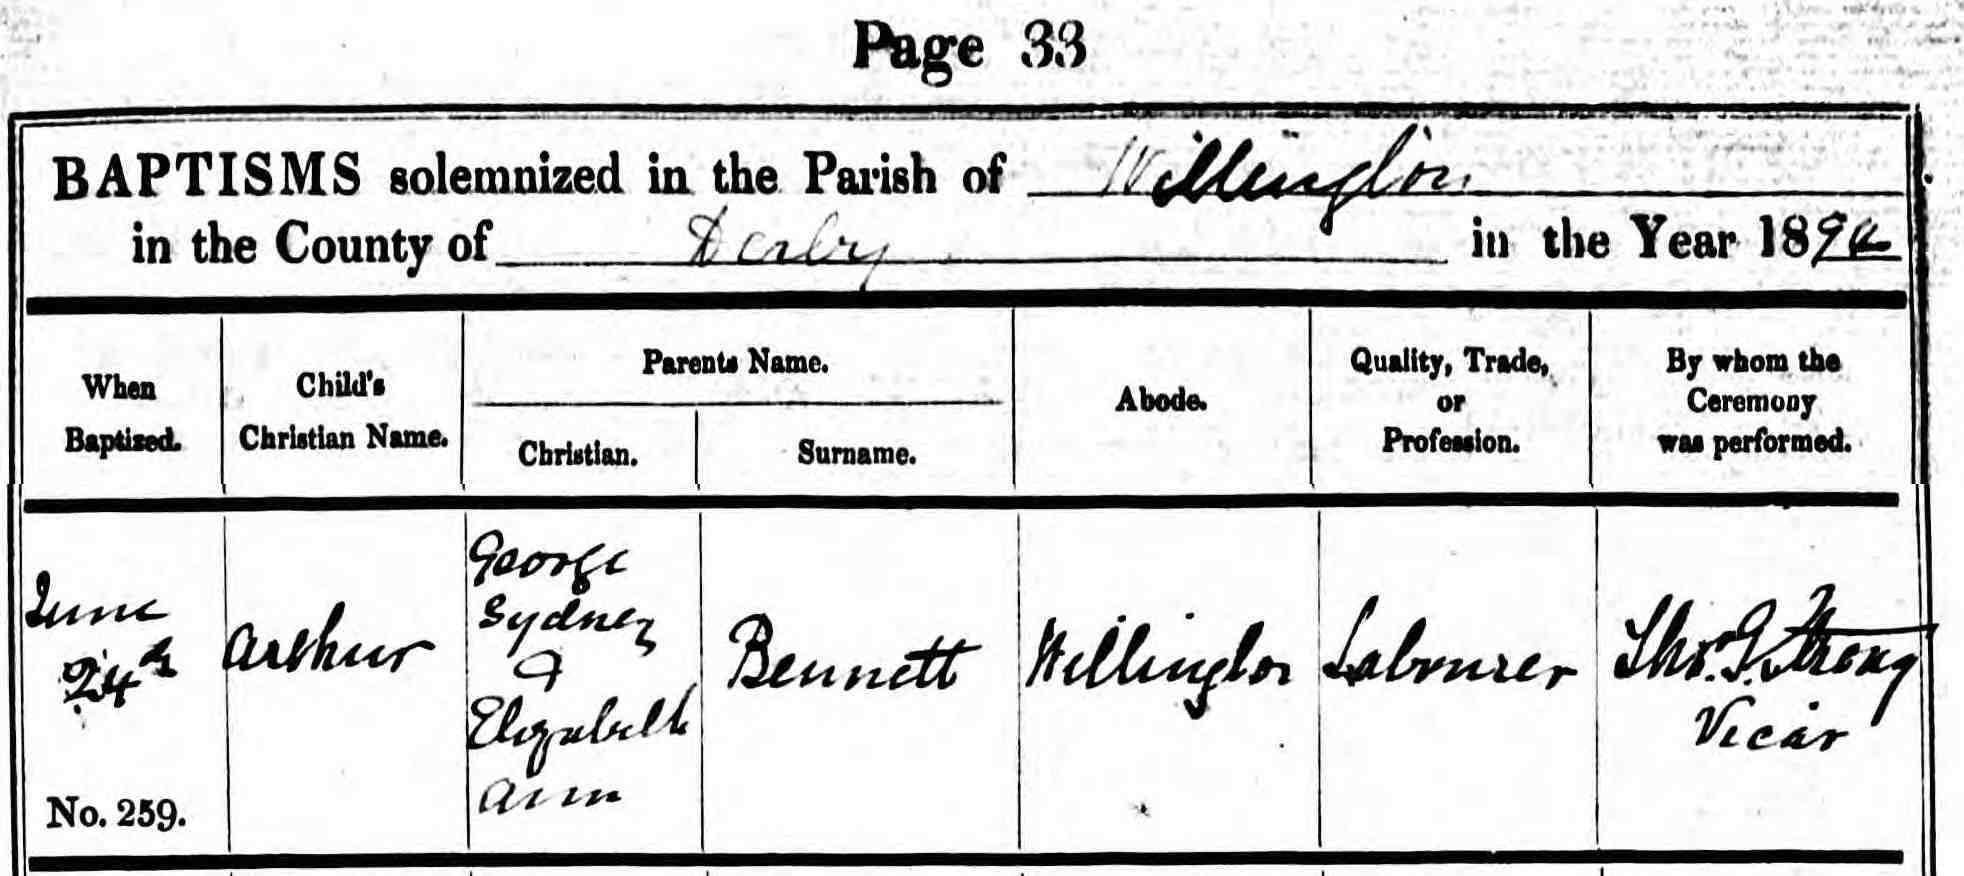 Page 33
BAPTISMS solemnized in the Parish of Willington
in the County of Derby in the Year 1894
When
Baptized.
Child's
Christian Name.
Parents Name.
Christian.
Surname.
Abode.
Quality, Trade,
or
Profession.
By whom the
Ceremony
was performed.
June
24th
No. 259.
Arthur
George
Sydney
&
Elizabeth
Ann
Bennett
Willington
Labourer
Tho. J. Strong
Vicar